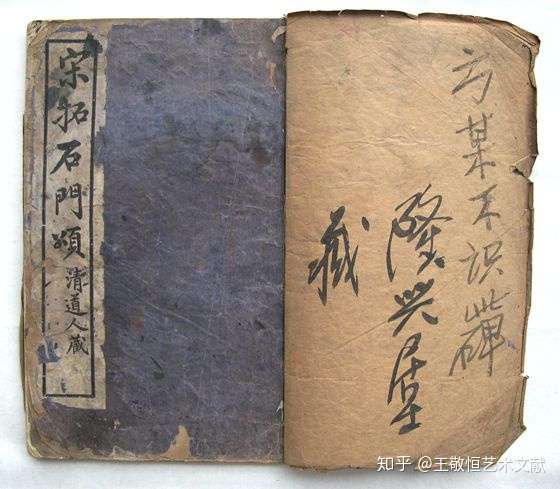 宋拓石門頌
清道人藏
某不识碑
隆兴
藏
知乎 @王敬恒艺术文献